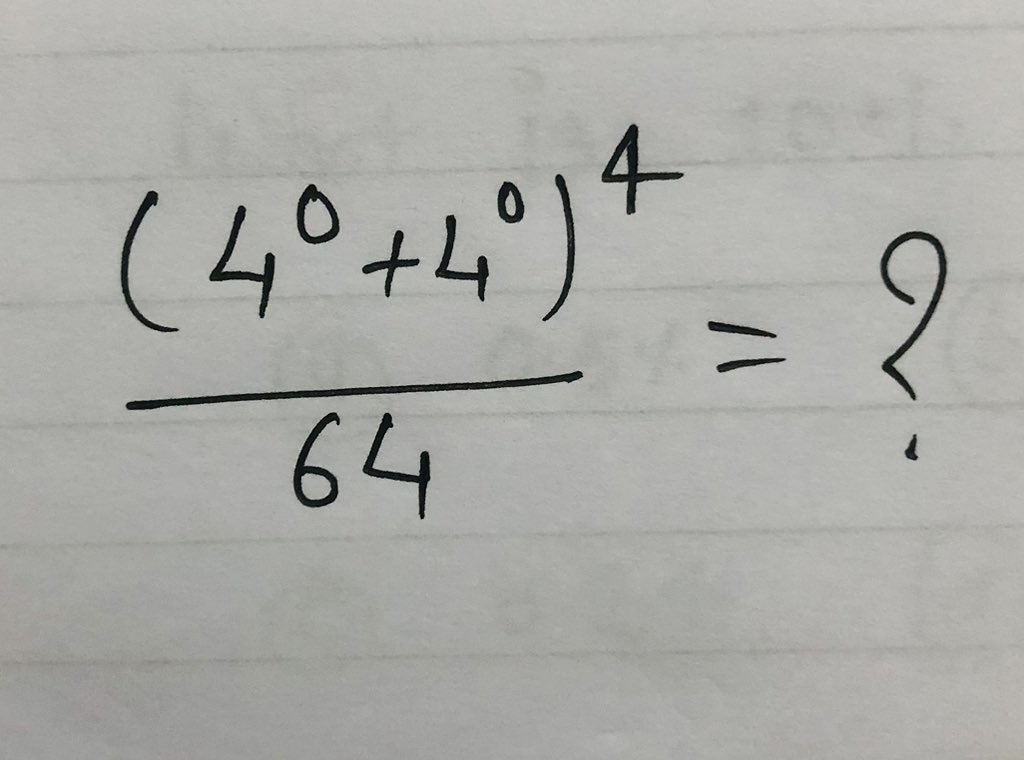 (4⁰+4⁰)⁴
64
= ?